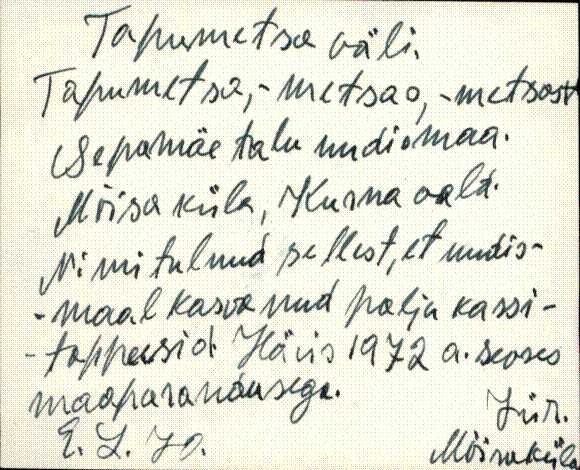 Tapumetsa väli.
Tapumetsa, -metsao, -metsast
Sepamäe talu uudismaa.
Mõisa küla, Kurna vald.
Nimi tulnud sellest, et uudis-
-maal kasvanud palju kassi-
-tappusid. Hävis 1972 a. seoses
maaparandusega.
E. L. 70.
Jür.
Mõisaküla